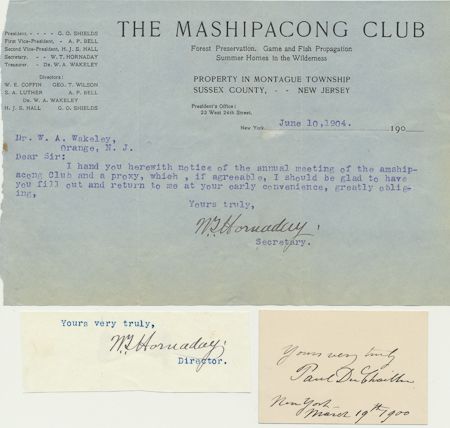 THE MASHIPACONG CLUB
President. - - - - G. O. SHIELDS
First Vice-President. - A. P. BELL
Second Vice-President. H. J. S. HALL
Secretary. - - W. T. HORNADAY
Treasurer. - DR. W. A. WAKELEY
Directors:
W. E. COFFIN GEO. T. WILSON
S. A. LUTHER A. P. BELL
DR. W. A. WAKELEY
H. J. S. HALL G. O. SHIELDS
Forest Preservation. Game and Fish Propagation
Summer Homes in the Wilderness
PROPERTY IN MONTAGUE TOWNSHIP
SUSSEX COUNTY, - - NEW JERSEY
President's Office:
23 West 24th Street.
New York, June 10, 1904. 190
Dr. W. A. Wakeley,
Orange, N. J.
Dear Sir:
I hand you herewith notice of the annual meeting of the amship-
acong Club and a proxy, which , if agreeable, I should be glad to have
you fill out and return to me at your early convenience, greatly oblig-
ing,
Yours truly,
W.T. Hornaday.
Secretary.
Yours very truly,
W.T. Hornaday.
Director.
Yours very truly
Paul Du Chaillu
New York
March 19th 1900